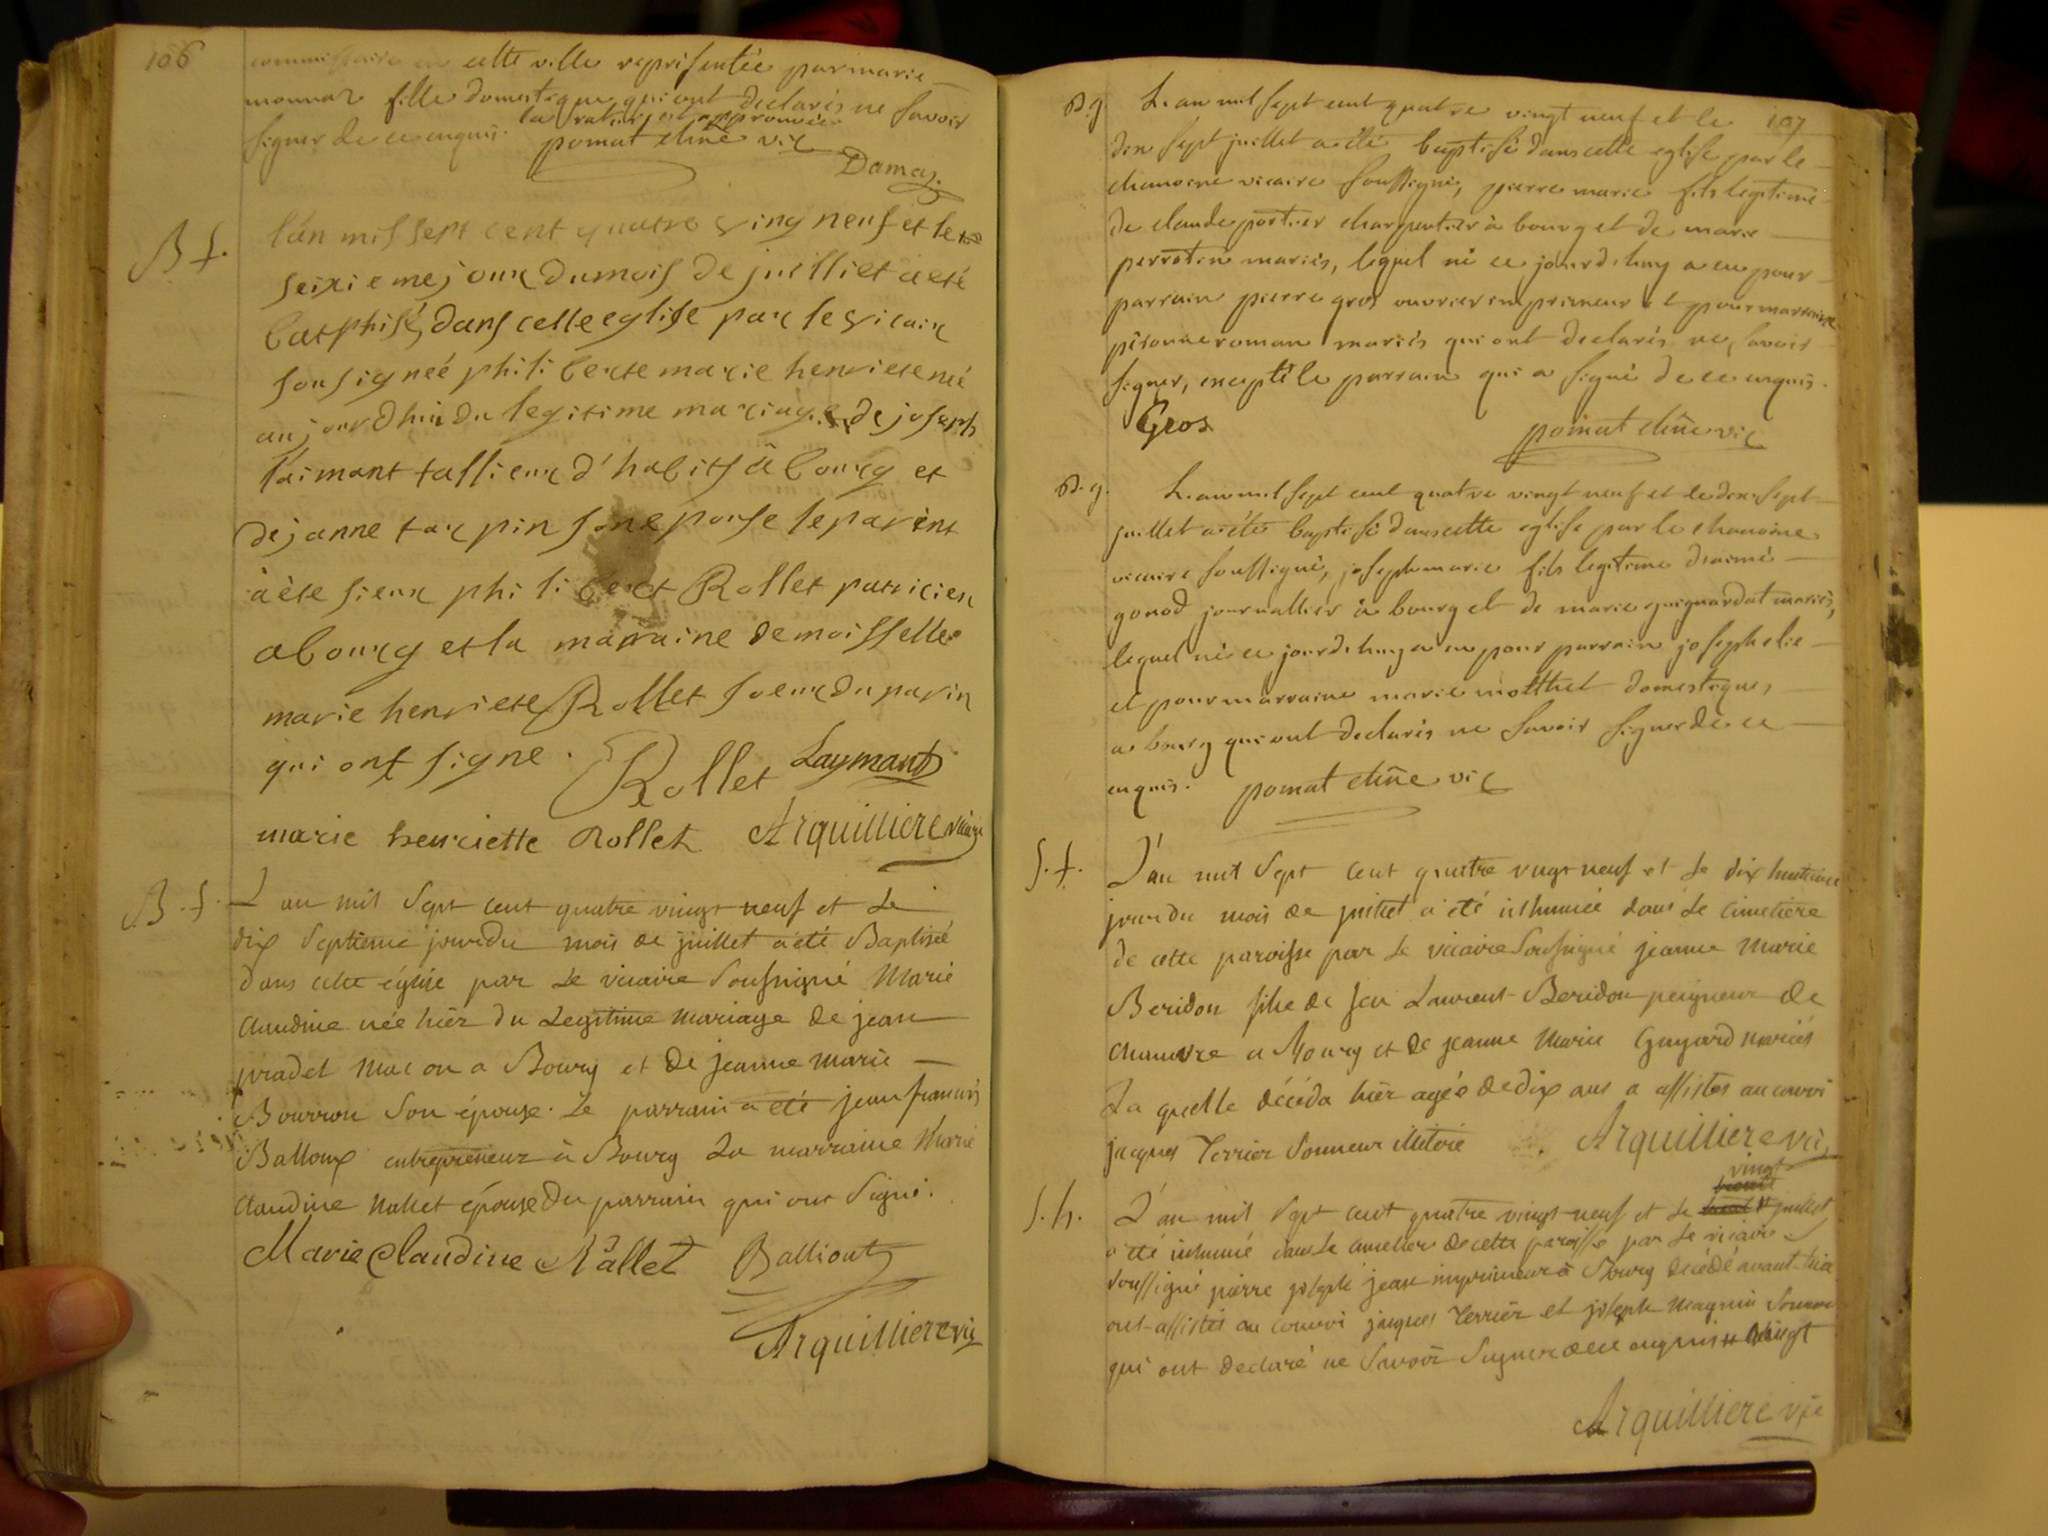 106
commissaire en cette ville representée par marie
monnaz fille domestique qui ont declarés ne savoir
la rature est approuvée
signer de ce enquis. pomat chne vic
Damas
B f.
l'an mil sept cent quatre ving neuf et le
seixieme jour du mois de juilliet a eté
batphisé dans cette eglise par le vicair
sousigneé philiberte marie henriete neé
aujourdhui du legitime mariage de joseph
laimant tallieur d'habits â bourg et
de janne tarpin son epouse le parént
à éte sieur philibert Rollet patricien
a bourg et la marraine demoisselle
marie henriete Rollet soeur du parin
qui ont signe.
Rollet Laymant
marie henriette Rollet Arquilliere vicaire
B. f.
L'an mil sept cent quatre vingt neuf et le
dix septieme jour du mois de juillet a été Baptisée
dans cette église par le vicaire soussigné Marie
claudine née hier du Legitime mariage de jean
pradel macon a Bourg et de jeanne marie
Bourron son épouse. Le parrain a été jean francois
Balloux entrepreneur à Bourg La marraine Marie
claudine Nallet épouse du parrain qui ont signé.
Marie Claudine Nâllet Balliout
Arquilliere vic
107
B. g.
L'an mil sept cent quatre vingt neuf et le
dix sept juillet a été baptisé dans cette eglise par le
chanoine vicaire soussigné, pierre marie fils legitime
de claude portier charpentier à bourg et de marie
perrotin mariés, lequel né ce jourd'huy a eu pour
parrain pierre gros ouvrier imprimeur et pour marraine
péronne roman mariés qui ont declarés ne savoir
signer, excepté le parrain qui a signé de ce enquis.
Gros pomat chne vic
B. g.
L'an mil sept cent quatre vingt neuf et le dix sept
juillet a été baptisé dans cette eglise par le chanoine
vicaire soussigné, joseph marie fils legitime d'aimé
gonod journallier à bourg et de marie guignardat mariés,
lequel né ce jourd'huy a eu pour parrain joseph elie
et pour marraine marie motthet domestiques
a bourg qui ont declarés ne savoir signer de ce
enquis. pomat chne vic
S. f.
L'an mil sept cent quatre vingt neuf et le dix huitieme
jour du mois de juillet a été inhumée dans le cimetiere
de cette paroisse par le vicaire soussigné jeanne marie
Beridon fille de feu Laurent Beridon peigneur de
chanvre a Bourg et de jeanne marie Guyard mariés
La quelle décéda hier agée de dix ans a assistés au convoi
jacques Terrier sonneur illitoré Arquilliere vic
S. h.
vingt
L'an mil sept cent quatre vingt neuf et le juillet
a été inhumé dans le cimetiere de cette paroisse par le vicaire
soussigné pierre joseph jean imprimeur à Bourg décédé avant hier
ont assistés au convoi jacques Terrier et joseph magnin sonneur
qui ont declaré ne savoir signer de ce enquis vingt
Arquilliere vic